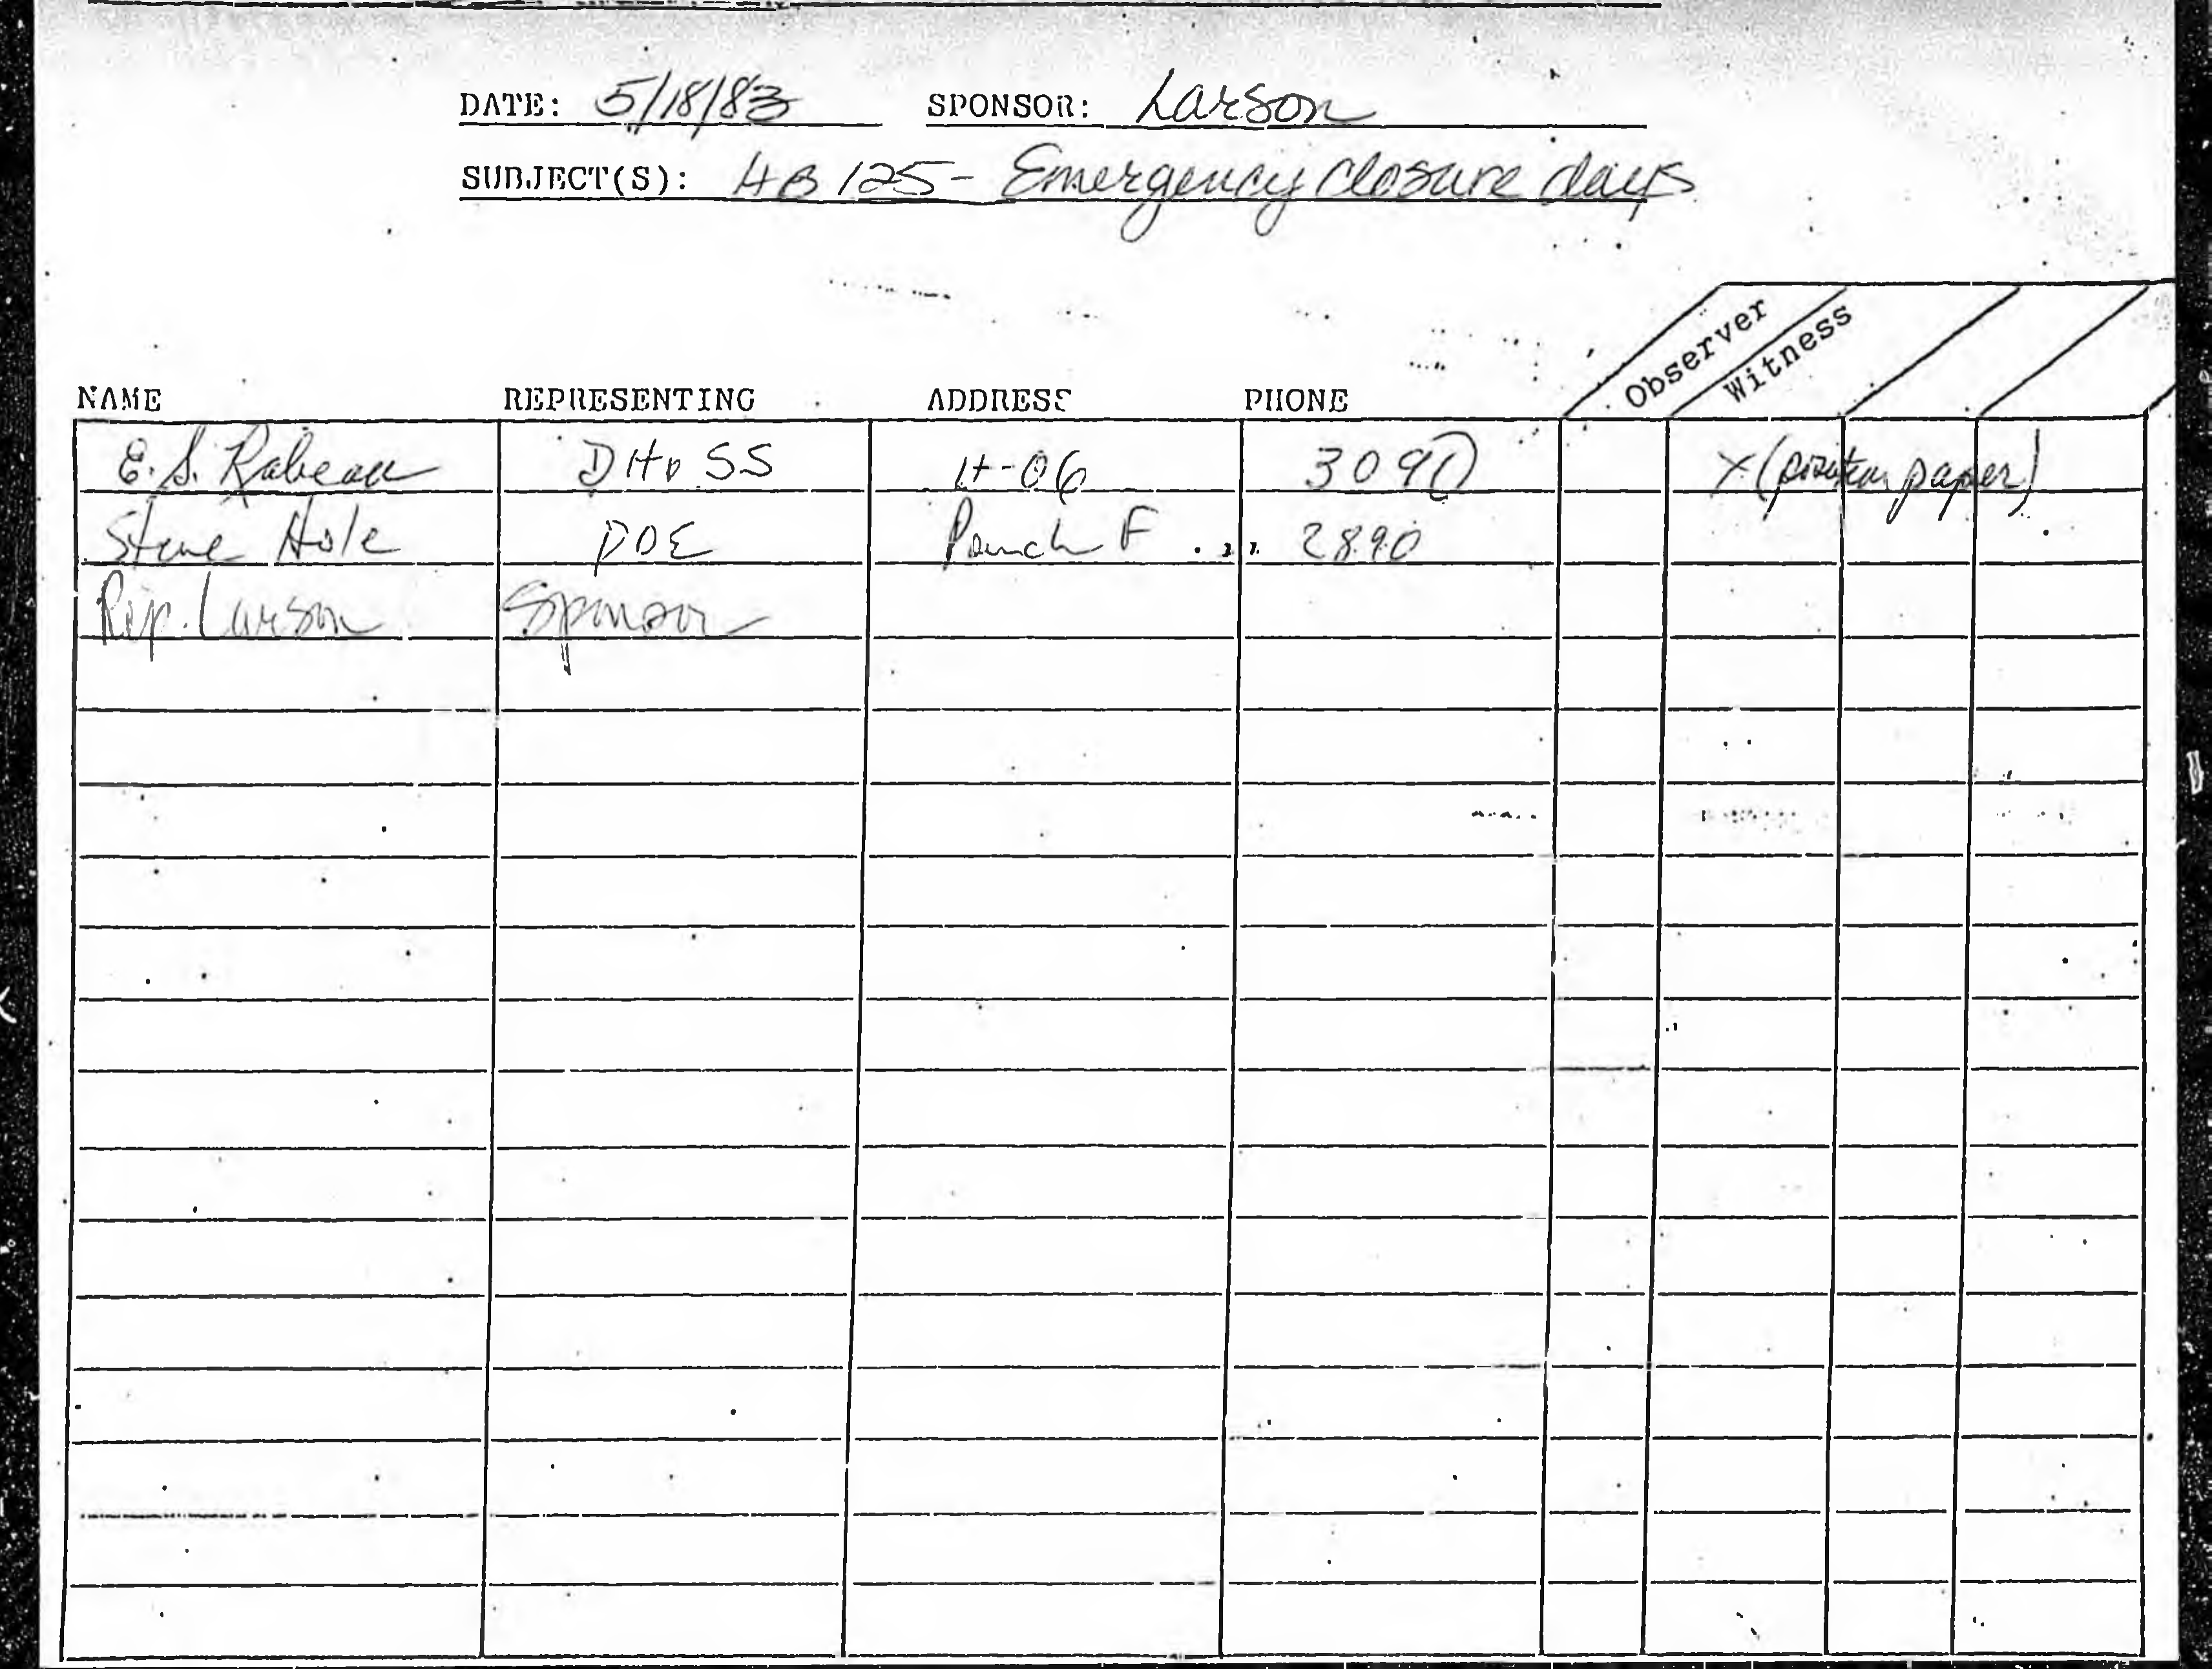 DATE: 5/18/83 SPONSOR: Larson
SUBJECT(S): HB 125 - Emergency closure days
Observer
Witness
NAME REPRESENTING ADDRESS PHONE
E. S. Rabeau DH&SS H-06 3090 X (position paper)
Steve Hole DOE Pouch F 2890
Rep. Larson Sponsor